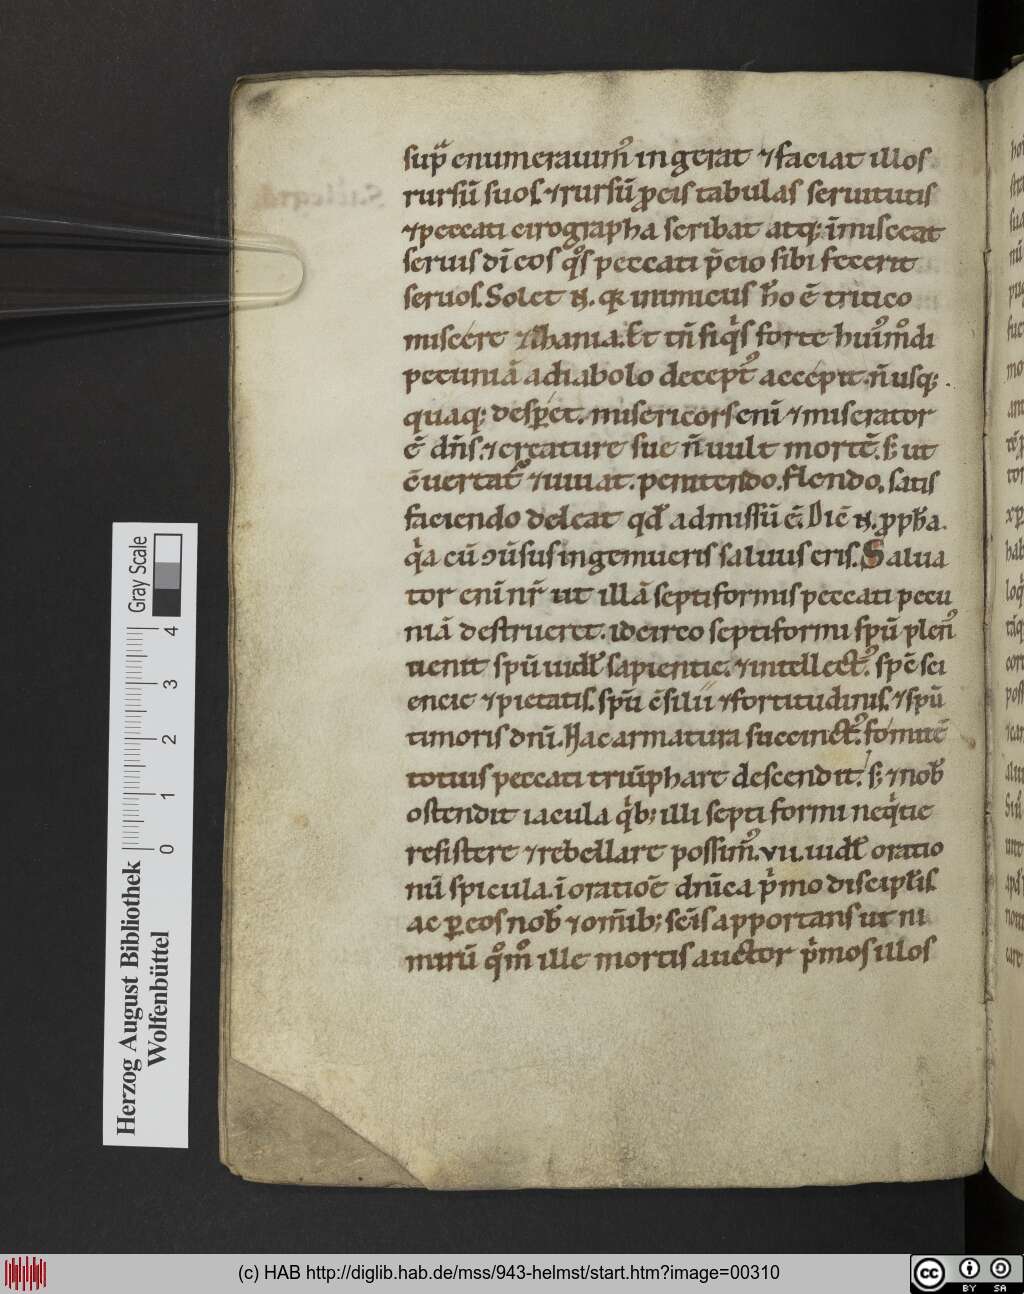 sup̃ enumerauim᷒ ingerat ⁊ faciat illos
rursū suos. ⁊ rursū ꝓ eis tabulas seruitutis
⁊ peccati cirographa scribat atq; īmisceat
seruis dī eos qͦs peccati p̄cio sibi fecerit
seruos. Solet n̄. inimicus hͦ ē tritico
miscere zizania. Et tn̄ si qͥs forte huiꝰmͦdi
pecuniā a diabolo deceptꝰ accepit. n̄ usq;
quaq; despet. misericors enī ⁊ miserator
ē dn̄s. ⁊ creature sue n̄ uult mortē. s; ut
ꝯuertat᷑ ⁊ uiuat. penitendo. flendo. satis
faciendo deleat qd̄ admissū ē. Dic̄ n̄. ꝓpħa.
qͥa cū ꝯūsus ingemueris saluus eris. Salua
tor enī nr̄ ut illā septiformis peccati pecu
niā destrueret. idcirco septiformi spū plenꝰ
uenit spū uidl̄ sapientie. ⁊ intellectꝰ. spē sci
encie ⁊ pietatis. spū ꝯsilii ⁊ fortitudinis. ⁊ spū
timoris dnī. Hac armatura succinctꝰ. fomitē
totius peccati triūphare descendit. s; ⁊ nob̄
ostendit iacula qͥb; illi septiformi neqͥtie
resistere ⁊ rebellare possimꝰ. vii. uidl̄ oratio
nū spicula. ī oratiōe dnīca pͥmo discipl̄is.
ac ꝑ eos nob̄ ⁊ omīb; scīs apportans ut ni
mirū qͦmͦ ille mortis auctor pͥmos illos
Gray Scale
0 1 2 3 4
Herzog August Bibliothek
Wolfenbüttel
(c) HAB http://diglib.hab.de/mss/943-helmst/start.htm?image=00310
cc BY SA